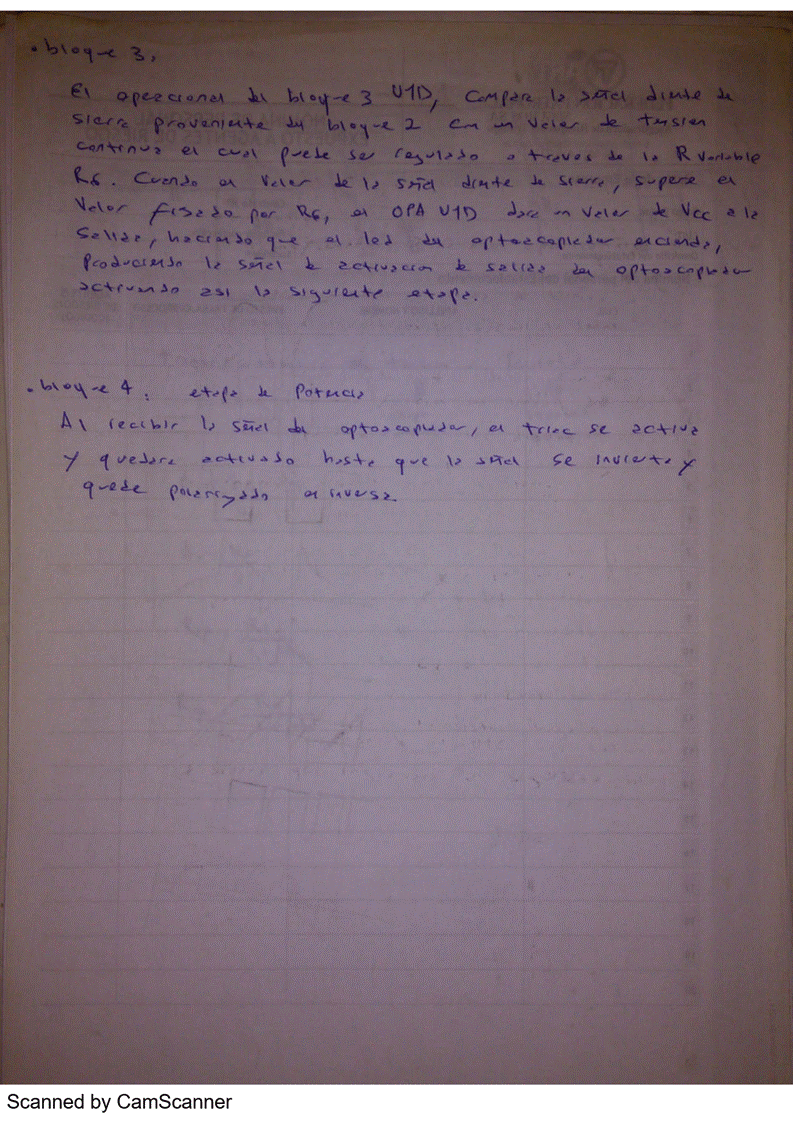 • bloque 3,
El operacional del bloque 3 U1D, compara la señal diente de
sierra proveniente del bloque 2 con un valor de tension
continua el cual puede ser regulado a traves de la R variable
R6. Cuando el valor de la señal diente de sierra, supere el
valor fisado por R6, el OPA U1D dara un valor de Vcc a la
salida, haciendo que el led del optoacoplador encienda,
produciendo la señal de activacion de salida del optoacoplador
activando asi la siguiente etapa.
• bloque 4, etapa de Potencia
Al recibir la señal del optoacoplador, el triac se activa
y quedara activado hasta que la señal se invierta y
quede polarizado en inversa.
Scanned by CamScanner